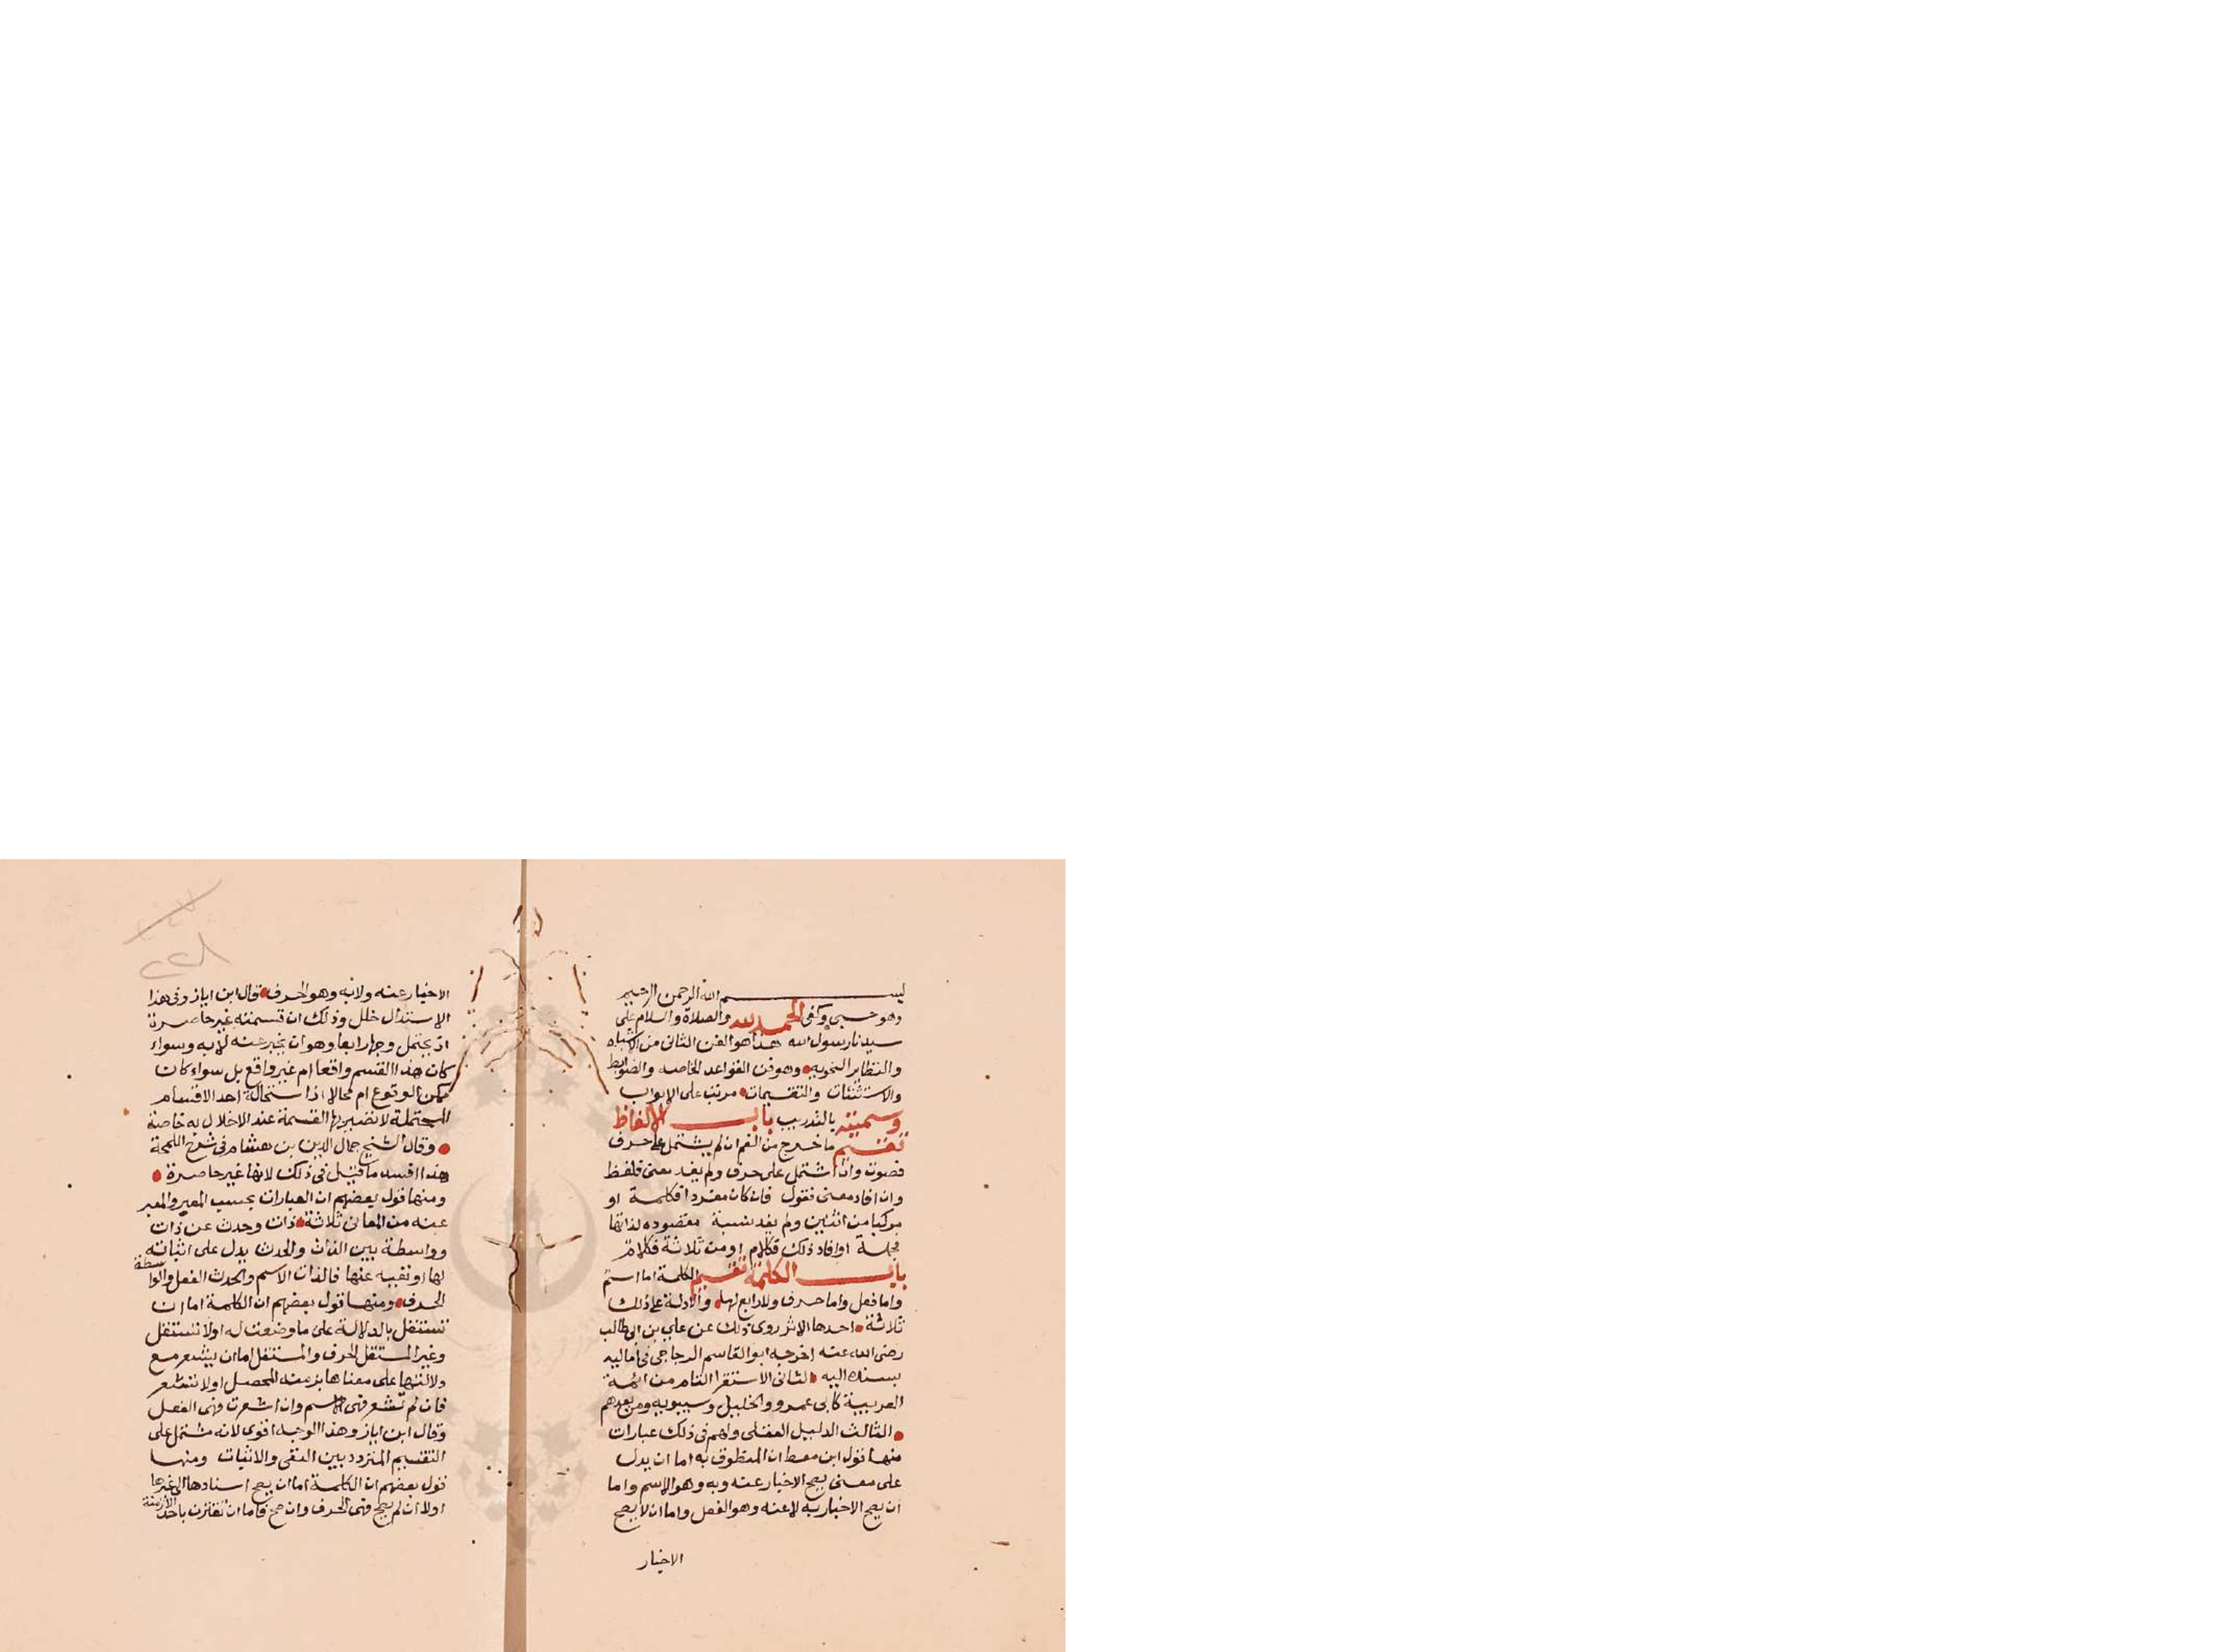 بسم الله الرحمن الرحيم
وهو حسبي وكفى الحمد لله والصلاة والسلام على
سيدنا رسول الله هذا هو الفن الثاني من الاشباه
والنظاير النحويه وهو فن القواعد الخاصه والضوابط
والاستثنات والتقسيمات مرتب على الابواب
وسميته بالتدريب باب الالفاظ
تقسيم ما خرج من الفم ان لم يشتمل على حرف
فصوت وان اشتمل على حرف ولم يفد معنى فلفظ
وان افاد معنى فقول فان كان مفردا فكلمة او
مركبا من اثنين ولم يفد نسبة مقصوده لذاتها
فجملة او افاد ذلك فكلام او من ثلاثة فكلام
باب الكلمة تقسيم الكلمة اما اسم
واما فعل واما حرف ولا رابع لها والادلة على ذلك
ثلاثة احدها الاثر روى ذلك عن علي بن ابي طالب
رضى الله عنه اخرجه ابو القاسم الزجاجي في اماليه
بسنده اليه الثاني الاستقرا التام من ائمة
العربية كابي عمرو والخليل وسيبويه ومن بعدهم
الثالث الدليل العقلي ولهم في ذلك عبارات
منها قول ابن معط ان المنطوق به اما ان يدل
على معنى يصح الاخبار عنه وبه وهو الاسم واما
ان يصح الاخبار به لا عنه وهو الفعل واما ان لا يصح
الاخبار
٢٢٨
الاخبار عنه ولا به وهو الحرف قال ابن اياز وفي هذا
الاستدلال خلل وذلك ان قسمته غير حاصرة
اذ يحتمل وجها رابعا وهو ان يخبر عنه لا به وسواء
كان هذا القسم واقعا ام غير واقع بل سواء كان
ممكن الوقوع ام محالا اذ استحالة احد الاقسام
المحتملة لا تصير بها القسمة عند الاخلال به حاصة
وقال الشيخ جمال الدين بن هشام في شرح اللمحة
هذا افسد ما قيل في ذلك لانها غير حاصرة
ومنها قول بعضهم ان العبارات بحسب المعبر والمعبر
عنه من المعاني ثلاثة ذات وحدث عن ذات
وواسطة بين الذات والحدث يدل على اثباته
لها او نفيه عنها فالذات الاسم والحدث الفعل والواسطة
الحرف ومنها قول بعضهم ان الكلمة اما ان
تستقل بالدلالة على ما وضعت له او لا تستقل
وغير المستقل الحرف والمستقل اما ان يشعر مع
دلالتها على معناها بزمنه المحصل او لا تشعر
فان لم تشعر فهي الاسم وان اشعرت فهي الفعل
وقال ابن اياز وهذا الوجه اقوى لانه مشتمل على
التقسيم المتردد بين النفي والاثبات ومنها
قول بعضهم ان الكلمة اما ان يصح اسنادها الى غيرها
اولا ان لم يصح فهي الحرف وان صح فاما ان تقترن باحد الازمنة